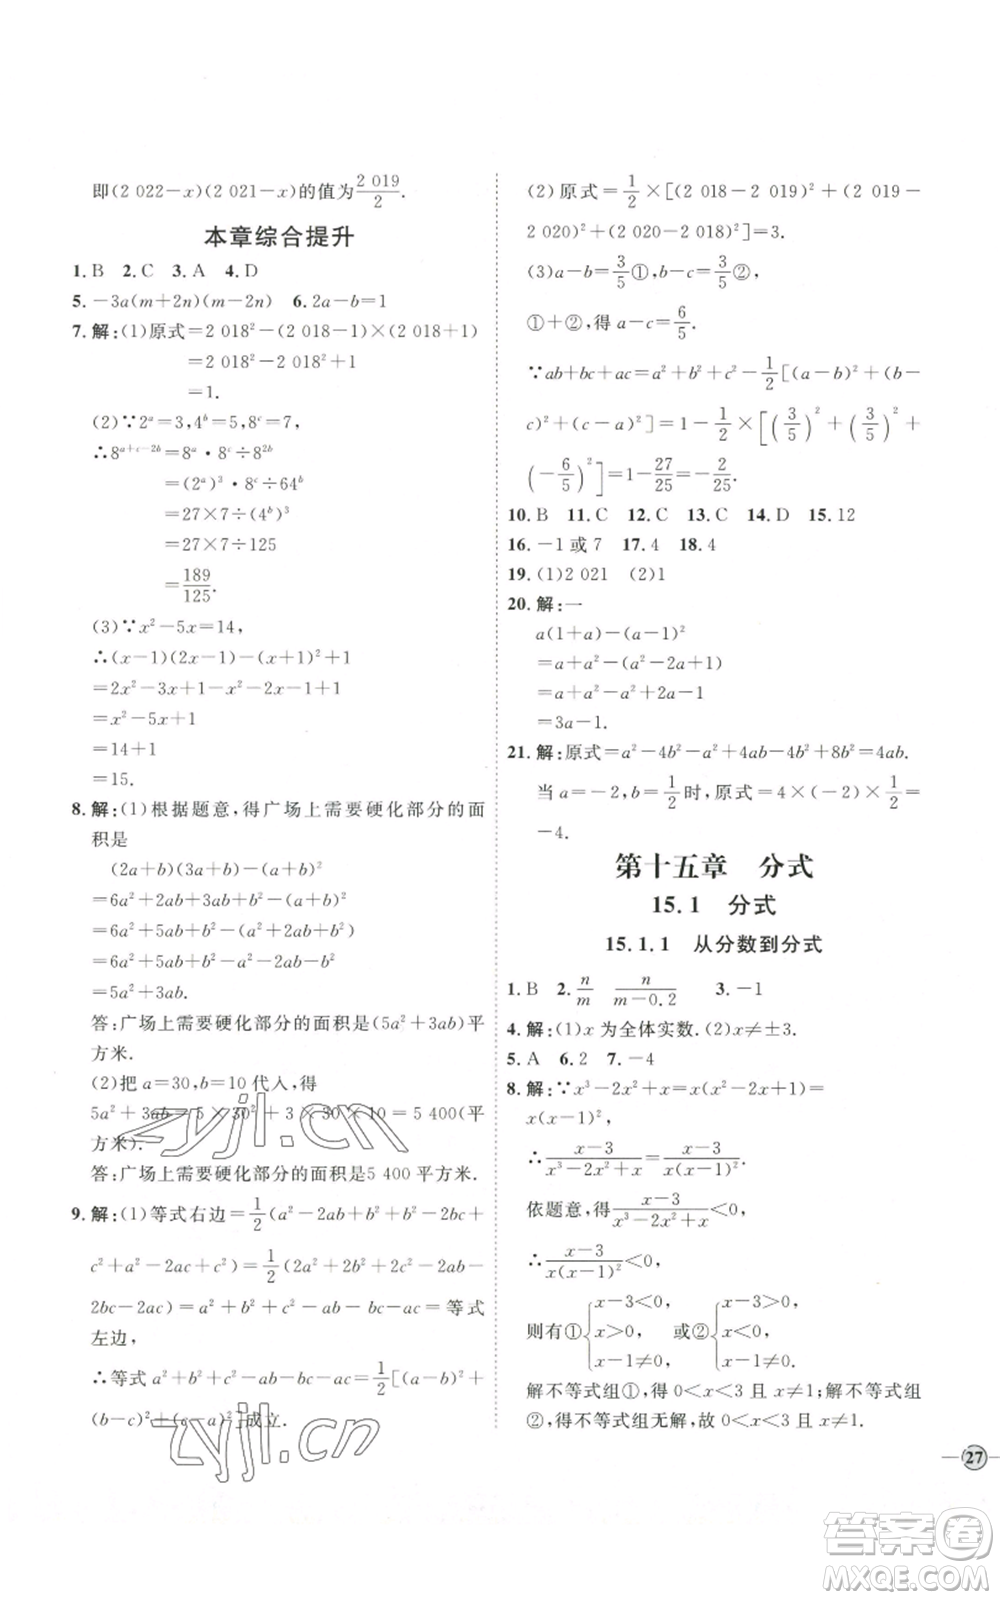 即(2 022－x)(2 021－x)的值为2 019/2.
本章综合提升
1. B 2. C 3. A 4. D
5. －3a(m＋2n)(m－2n) 6. 2a－b＝1
7. 解:(1)原式＝2 018²－(2 018－1)×(2 018＋1)
＝2 018²－2 018²＋1
＝1.
(2)∵2ᵃ＝3,4ᵇ＝5,8ᶜ＝7,
∴8ᵃ⁺ᶜ⁻²ᵇ＝8ᵃ·8ᶜ÷8²ᵇ
＝(2ᵃ)³·8ᶜ÷64ᵇ
＝27×7÷(4ᵇ)³
＝27×7÷125
＝189/125.
(3)∵x²－5x＝14,
∴(x－1)(2x－1)－(x＋1)²＋1
＝2x²－3x＋1－x²－2x－1＋1
＝x²－5x＋1
＝14＋1
＝15.
8. 解:(1)根据题意,得广场上需要硬化部分的面
积是
(2a＋b)(3a＋b)－(a＋b)²
＝6a²＋2ab＋3ab＋b²－(a＋b)²
＝6a²＋5ab＋b²－(a²＋2ab＋b²)
＝6a²＋5ab＋b²－a²－2ab－b²
＝5a²＋3ab.
答:广场上需要硬化部分的面积是(5a²＋3ab)平
方米.
(2)把a＝30,b＝10代入,得
5a²＋3ab＝5×30²＋3×30×10＝5 400(平
方米).
答:广场上需要硬化部分的面积是5 400平方米.
9. 解:(1)等式右边＝1/2(a²－2ab＋b²＋b²－2bc＋
c²＋a²－2ac＋c²)＝1/2(2a²＋2b²＋2c²－2ab－
2bc－2ac)＝a²＋b²＋c²－ab－bc－ac＝等式
左边,
∴等式a²＋b²＋c²－ab－bc－ac＝1/2[(a－b)²＋
(b－c)²＋(c－a)²]成立.
(2)原式＝1/2×[(2 018－2 019)²＋(2 019－
2 020)²＋(2 020－2 018)²]＝3.
(3)a－b＝3/5①,b－c＝3/5②,
①＋②,得a－c＝6/5.
∵ab＋bc＋ac＝a²＋b²＋c²－1/2[(a－b)²＋(b－
c)²＋(c－a)²]＝1－1/2×[(3/5)²＋(3/5)²＋
(－6/5)²]＝1－27/25＝－2/25.
10. B 11. C 12. C 13. C 14. D 15. 12
16. －1或7 17. 4 18. 4
19. (1)2 021 (2)1
20. 解:一
a(1＋a)－(a－1)²
＝a＋a²－(a²－2a＋1)
＝a＋a²－a²＋2a－1
＝3a－1.
21. 解:原式＝a²－4b²－a²＋4ab－4b²＋8b²＝4ab.
当a＝－2,b＝1/2时,原式＝4×(－2)×1/2＝
－4.
第十五章 分式
15.1 分式
15.1.1 从分数到分式
1. B 2. n/m n/(m－0.2) 3. －1
4. 解:(1)x为全体实数.(2)x≠±3.
5. A 6. 2 7. －4
8. 解:∵x³－2x²＋x＝x(x²－2x＋1)＝
x(x－1)²,
∴(x－3)/(x³－2x²＋x)＝(x－3)/(x(x－1)²).
依题意,得(x－3)/(x³－2x²＋x)＜0,
∴(x－3)/(x(x－1)²)＜0,
则有①{x－3＜0, x＞0, x－1≠0 或②{x－3＞0, x＜0, x－1≠0.
解不等式组①,得0＜x＜3且x≠1;解不等式组
②,得不等式组无解,故0＜x＜3且x≠1.
27
zyjl.cn
zyjl.cn
答案卷
MXQE.COM